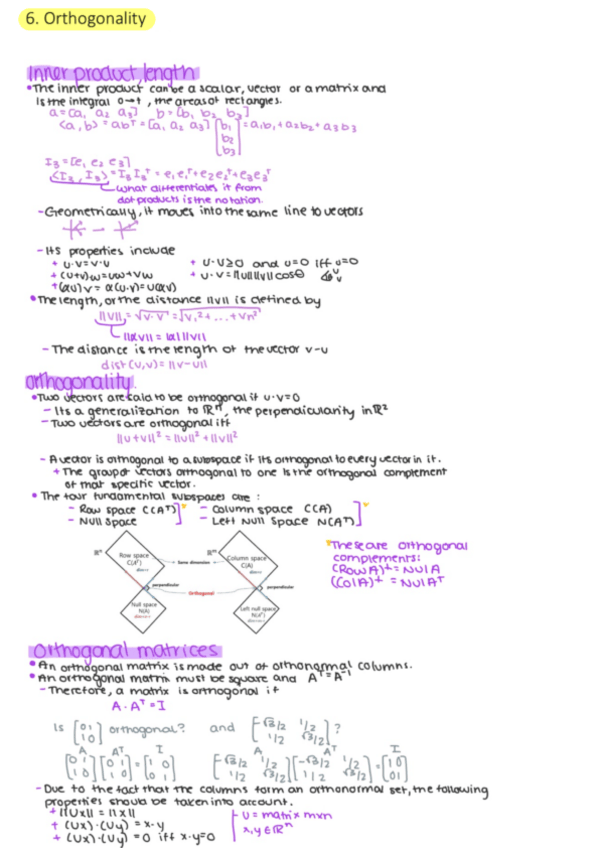 6. Orthogonality
Inner product, length
•The inner product can be a scalar, vector or a matrix and
is the integral 0→t, the areas of rectangles.
a=[a₁ a₂ a₃] b=[b₁ b₂ b₃]
⟨a,b⟩ = abᵀ = [a₁ a₂ a₃] [b₁ b₂ b₃] = a₁b₁+a₂b₂+a₃b₃
I₃=[e₁ e₂ e₃]
⟨I₃, I₃⟩ = I₃I₃ᵀ = e₁e₁ᵀ+e₂e₂ᵀ+e₃e₃ᵀ
what differentiates it from
dot products is the notation.
- Geometrically, it moves into the same line to vectors
- Its properties include
+ u·v=v·u + u·u≥0 and u=0 iff u=0
+ (u+v)w=uw+vw + u·v=||u||||v||cosθ
+(αu)v = α(u·v)=u(αv)
•The length, or the distance ||v|| is defined by
||v|| = √v·v = √v₁²+...+vn²
||αv|| = |α| ||v||
- The distance is the length of the vector v-u
dist(u,v)=||v-u||
orthogonality.
•Two vectors are said to be orthogonal if u·v=0
- Its a generalization to ℝⁿ, the perpendicularity in ℝ²
- Two vectors are orthogonal iff
||u+v||² = ||u||² + ||v||²
- A vector is orthogonal to a subspace if its orthogonal to every vector in it.
+ The group of vectors orthogonal to one is the orthogonal complement
of that specific vector.
• The four fundamental subspaces are:
- Row space C(Aᵀ) - Column space C(A)
- Null space - Left Null Space N(Aᵀ)
These are orthogonal
complements:
(Row A)⊥ = Nul A
(Col A)⊥ = Nul Aᵀ
ℝⁿ Row space C(Aᵀ) Same dimension ℝᵐ Column space C(A)
perpendicular perpendicular
Orthogonal
Null space N(A) Left null space N(Aᵀ)
orthogonal matrices
•An orthogonal matrix is made out of orthonormal columns.
•An orthogonal matrix must be square and Aᵀ=A⁻¹
- Therefore, a matrix is orthogonal if
A·Aᵀ=I
Is [0 1 1 0] orthogonal? and [√3/2 1/2 1/2 √3/2]?
A Aᵀ I A Aᵀ I
[0 1 1 0] [0 1 1 0] = [1 0 0 1] [-√3/2 1/2 1/2 √3/2] [-√3/2 1/2 1/2 √3/2] = [1 0 0 1]
- Due to the fact that the columns form an orthonormal set, the following
properties should be taken into account.
+ ||Ux|| = ||x||
+ (Ux)·(Uy) = x·y
+ (Ux)·(Uy) = 0 iff x·y=0
U = matrix mxn
x,y∈ℝⁿ